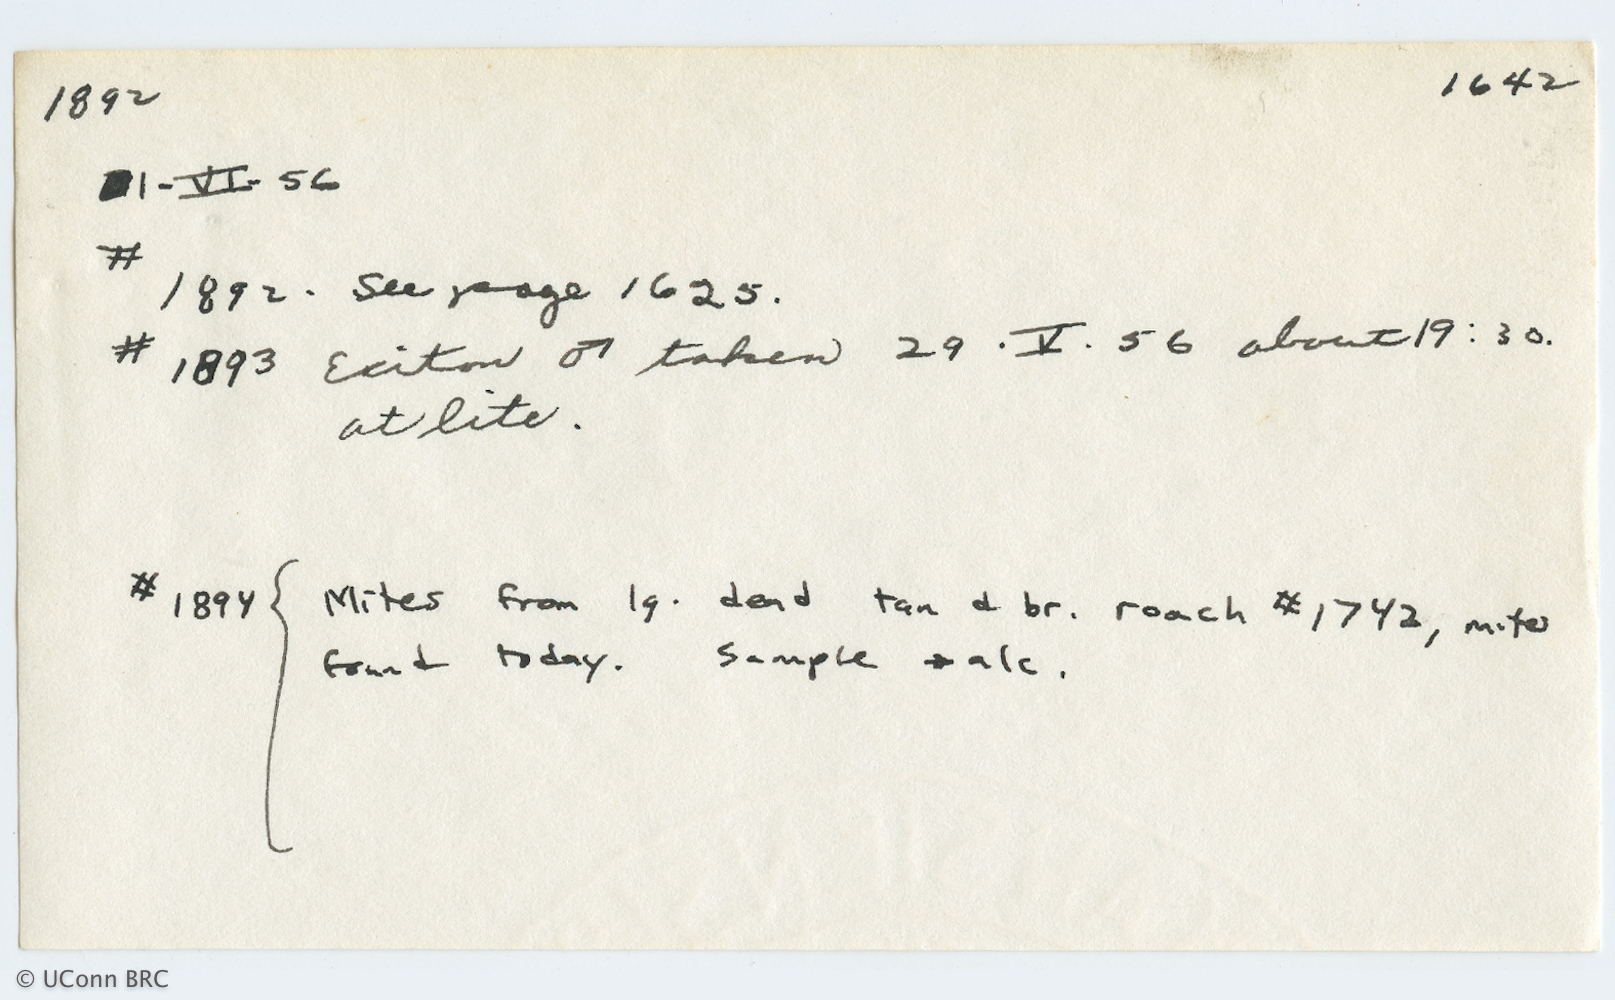 1892 1642
1-VI-56
#
1892. See page 1625.
# 1893 Eciton ♂ taken 29.V.56 about 19:30.
at lite.
# 1894 { Mites from lg. dead tan & br. roach #1742, mites
found today. Sample → alc.
© UConn BRC